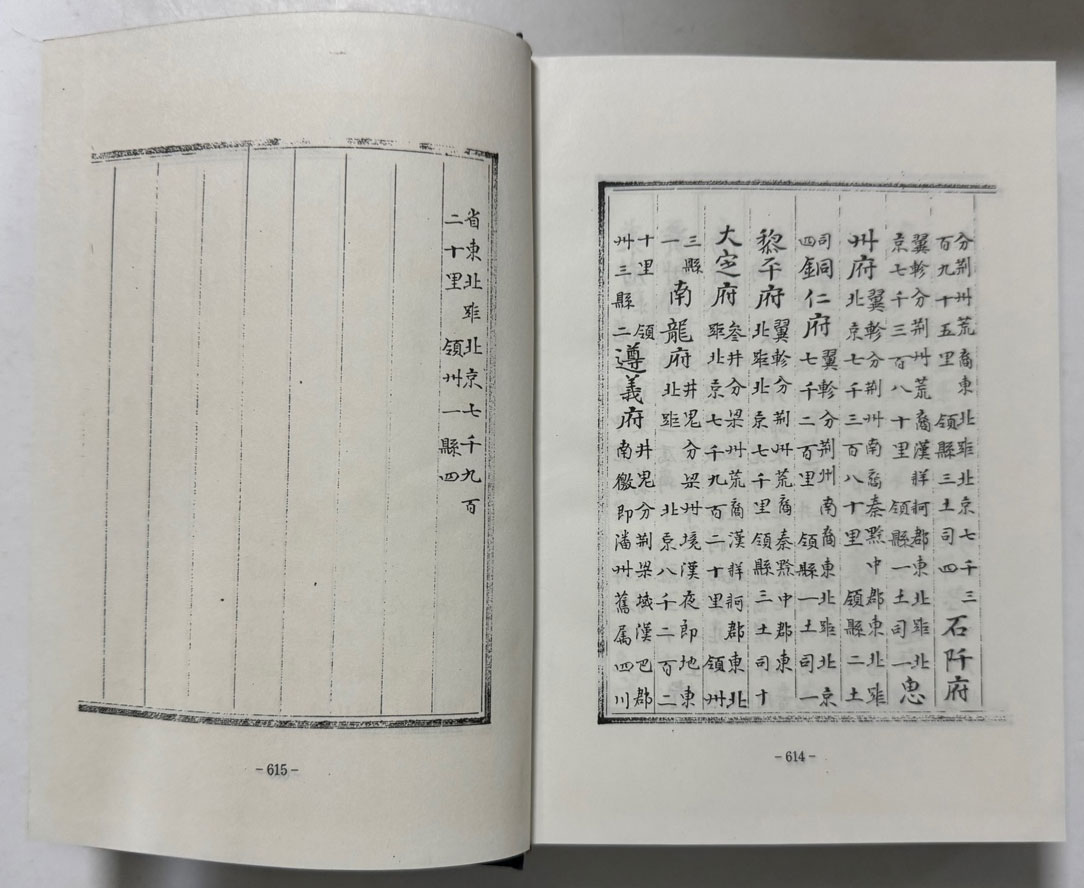 分荆州荒裔東北距北京七千三
百九十五里 領縣三土司四
石阡府
翼軫分荆州荒裔漢牂牁郡東北距北
京七千三百八十里 領縣一土司一
思
州府
翼軫分荆州南裔秦黔中郡東北距
北京七千三百八十里 領縣二土
司
四
銅仁府
翼軫分荆州南裔東北距北京
七千二百里 領縣一土司一
黎平府
翼軫分荆州荒裔秦黔中郡東
北距北京七千里領縣三土司十
大定府
參井分梁州荒裔漢牂牁郡東北
距北京七千九百二十里 領州
三縣
一
南龍府
井鬼分梁州境漢夜即地東
北距 北京八千二百二
十里 領
州三縣二
遵義府
井鬼分荆梁域漢巴郡
南徼即潘州舊属四川
-614-
省東北距北京七千九百
二十里 領州一縣四
-615-